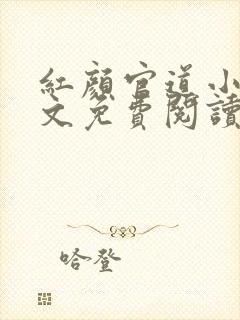 紅顏官道小
文免費閱讀
哈登